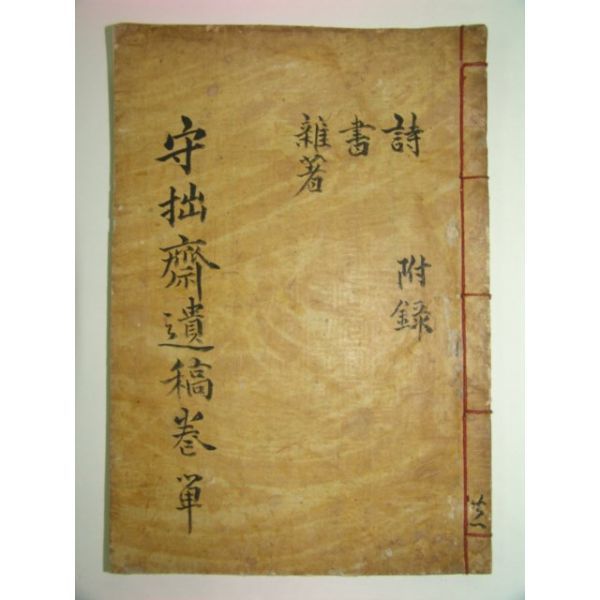 詩
書
雜著
附錄
守拙齋遺稿卷單